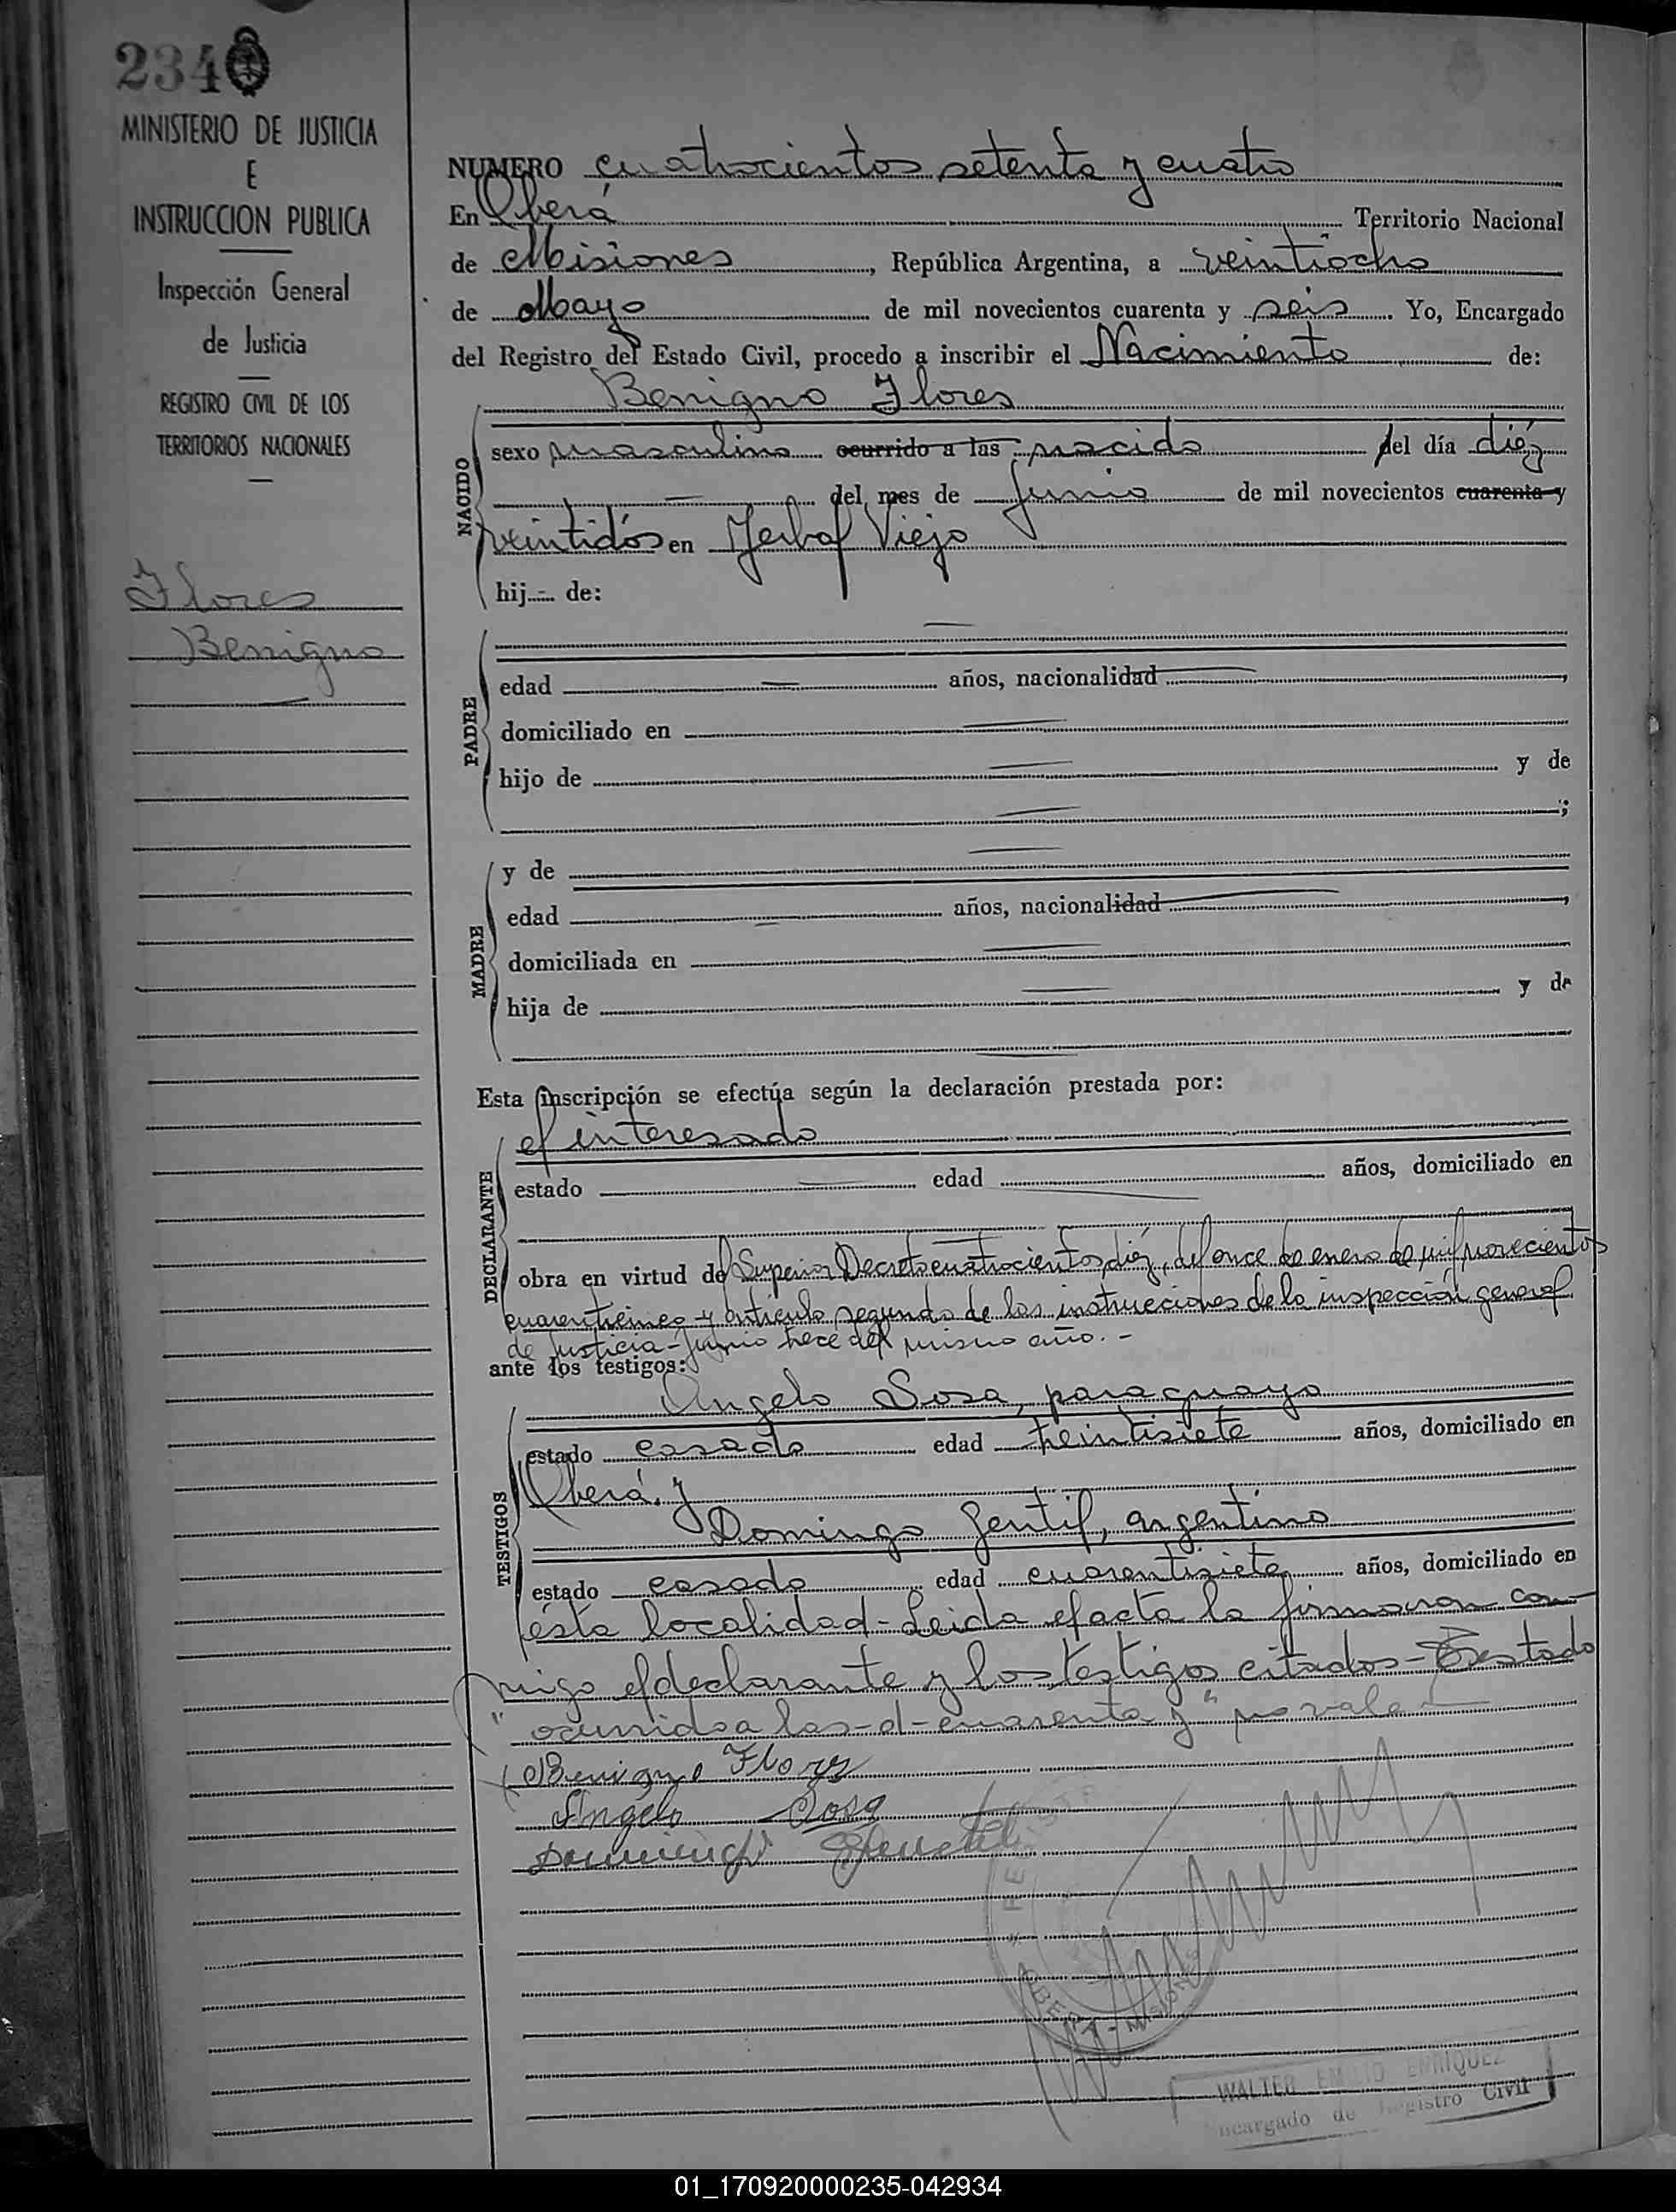 234
MINISTERIO DE JUSTICIA
E
INSTRUCCION PUBLICA
Inspección General
de Justicia
REGISTRO CIVIL DE LOS
TERRITORIOS NACIONALES
Flores
Benigno
NUMERO cuatrocientos setenta y cuatro
En Oberá Territorio Nacional
de Misiones, República Argentina, a veintiocho
de Mayo de mil novecientos cuarenta y seis. Yo, Encargado
del Registro del Estado Civil, procedo a inscribir el Nacimiento de:
Benigno Flores
NACIDO
sexo masculino ocurrido a las nacido del día diéz
— del mes de junio de mil novecientos cuarenta y
veintidós en Yerbal Viejo
hij - de:
PADRE
—
edad — años, nacionalidad —,
domiciliado en —
hijo de — y de
— ;
MADRE
y de —
edad — años, nacionalidad —,
domiciliada en —
hija de — y de
—
Esta inscripción se efectúa según la declaración prestada por:
DECLARANTE
el interesado
estado — edad — años, domiciliado en
—
obra en virtud del Superior Decreto cuatrocientos diéz, del once de enero de mil novecientos
cuarenticinco y artículo segundo de las instrucciones de la inspección general
de justicia - junio trece del mismo año. -
ante los testigos:
TESTIGOS
Angelo Sosa, paraguayo
estado casado edad treintisiete años, domiciliado en
Oberá. y
Domingo Gentil, argentino
estado casado edad cuarentisiete años, domiciliado en
ésta localidad - Leida el acta la firmaron con-
migo el declarante y los testigos citados - Testado
"ocurrido a las - d - cuarenta y" no vale -
Benigno Flores
Angelo Sosa
OBERA - MISIONES
WALTER EMILIO ENRIQUEZ
Encargado de Registro Civil
01_170920000235-042934